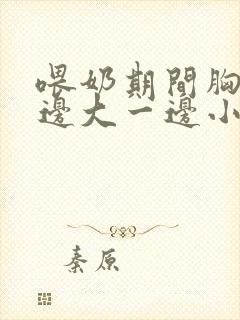 喂奶期間胸
邊大一邊小
秦原